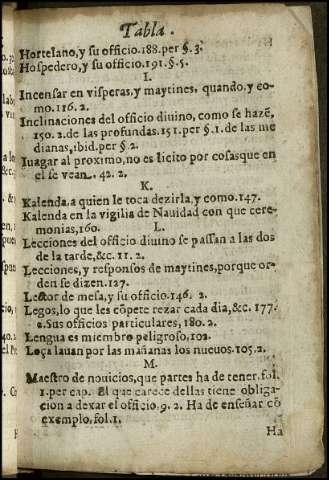 Tabla.
Hortelano, y su officio.188.per §.3.
Hospedero, y su officio.191.§.5.
I.
Incensar en visperas, y maytines, quando, y co-
mo.116.2.
Inclinaciones del officio diuino, como se hazẽ,
150.2.de las profundas.151.per §.1.de las me
dianas, ibid.per §.2.
Iuzgar al proximo, no es licito por cosas que en
el se vean. 42.2.
K.
Kalenda, a quien le toca dezirla, y como.147.
Kalenda en la vigilia de Nauidad con que cere-
monias, 160.
L.
Lecciones del officio diuino se passan a las dos
de la tarde, &c.11.2.
Lecciones, y responsos de maytines, porque or-
den se dizen.127.
Lector de mesa, y su officio.146.2.
Legos, lo que les cõpete rezar cada dia, &c. 177.
2. Sus officios particulares, 180.2.
Lengua es miembro peligroso, 102.
Loça lauan por las mañanas los nueuos.105.2.
M.
Maestro de nouicios, que partes ha de tener.fol.
1.per cap. El que carece dellas tiene obliga-
cion a dexar el officio.9.2. Ha de enseñar cõ
exemplo, fol.1.
Ha